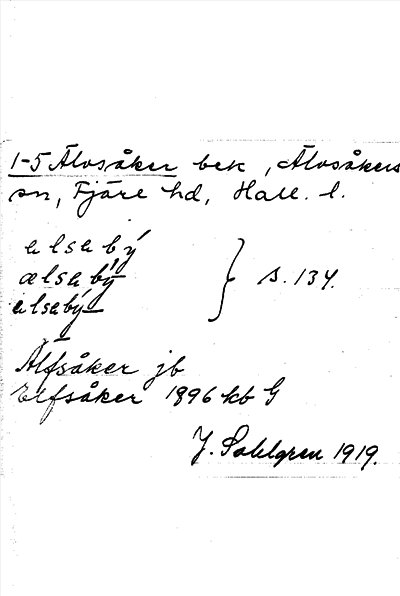 1-5 Älvsåker bek, Älvsåkers
sn, Fjäre hd, Hall. l.
alsabý
ælsabý
alsabý
} s. 134.
Älfsåker jb
Elfsåker 1896 kb G
J. Sahlgren 1919.